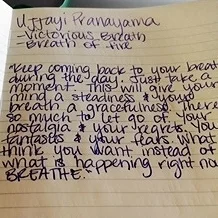 Ujjayi Pranayama
- Victorious Breath
- Breath of fire
Keep coming back to your breath
during the day. Just take a
moment. This will give your
mind a steadiness & your
breath a gracefulness. There's
so much to let go of. Your
nostalgia & your regrets. Your
fantasies & your fears. What you
think you want instead of
what is happening right now.
BREATHE.